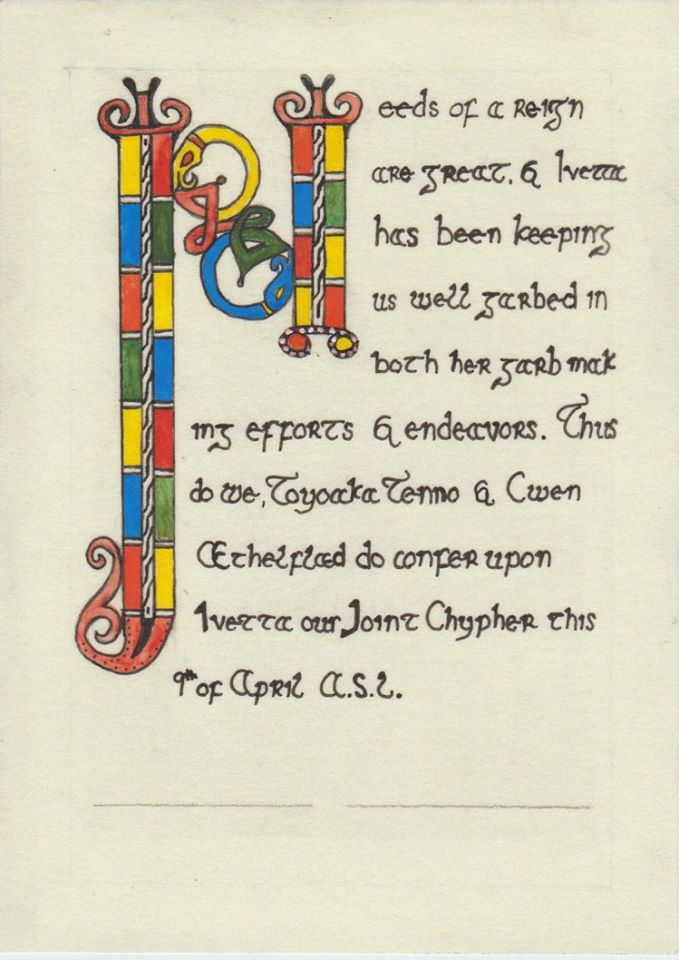 Needs of a Reign
are great, & Ivetta
has been keeping
us well garbed in
both her garb mak
ing efforts & endeavors. Thus
do we, Toyoaka Tenno & Cwen
Æthelflæd do confer upon
Ivetta our Joint Chypher this
9th of April A.S.L.